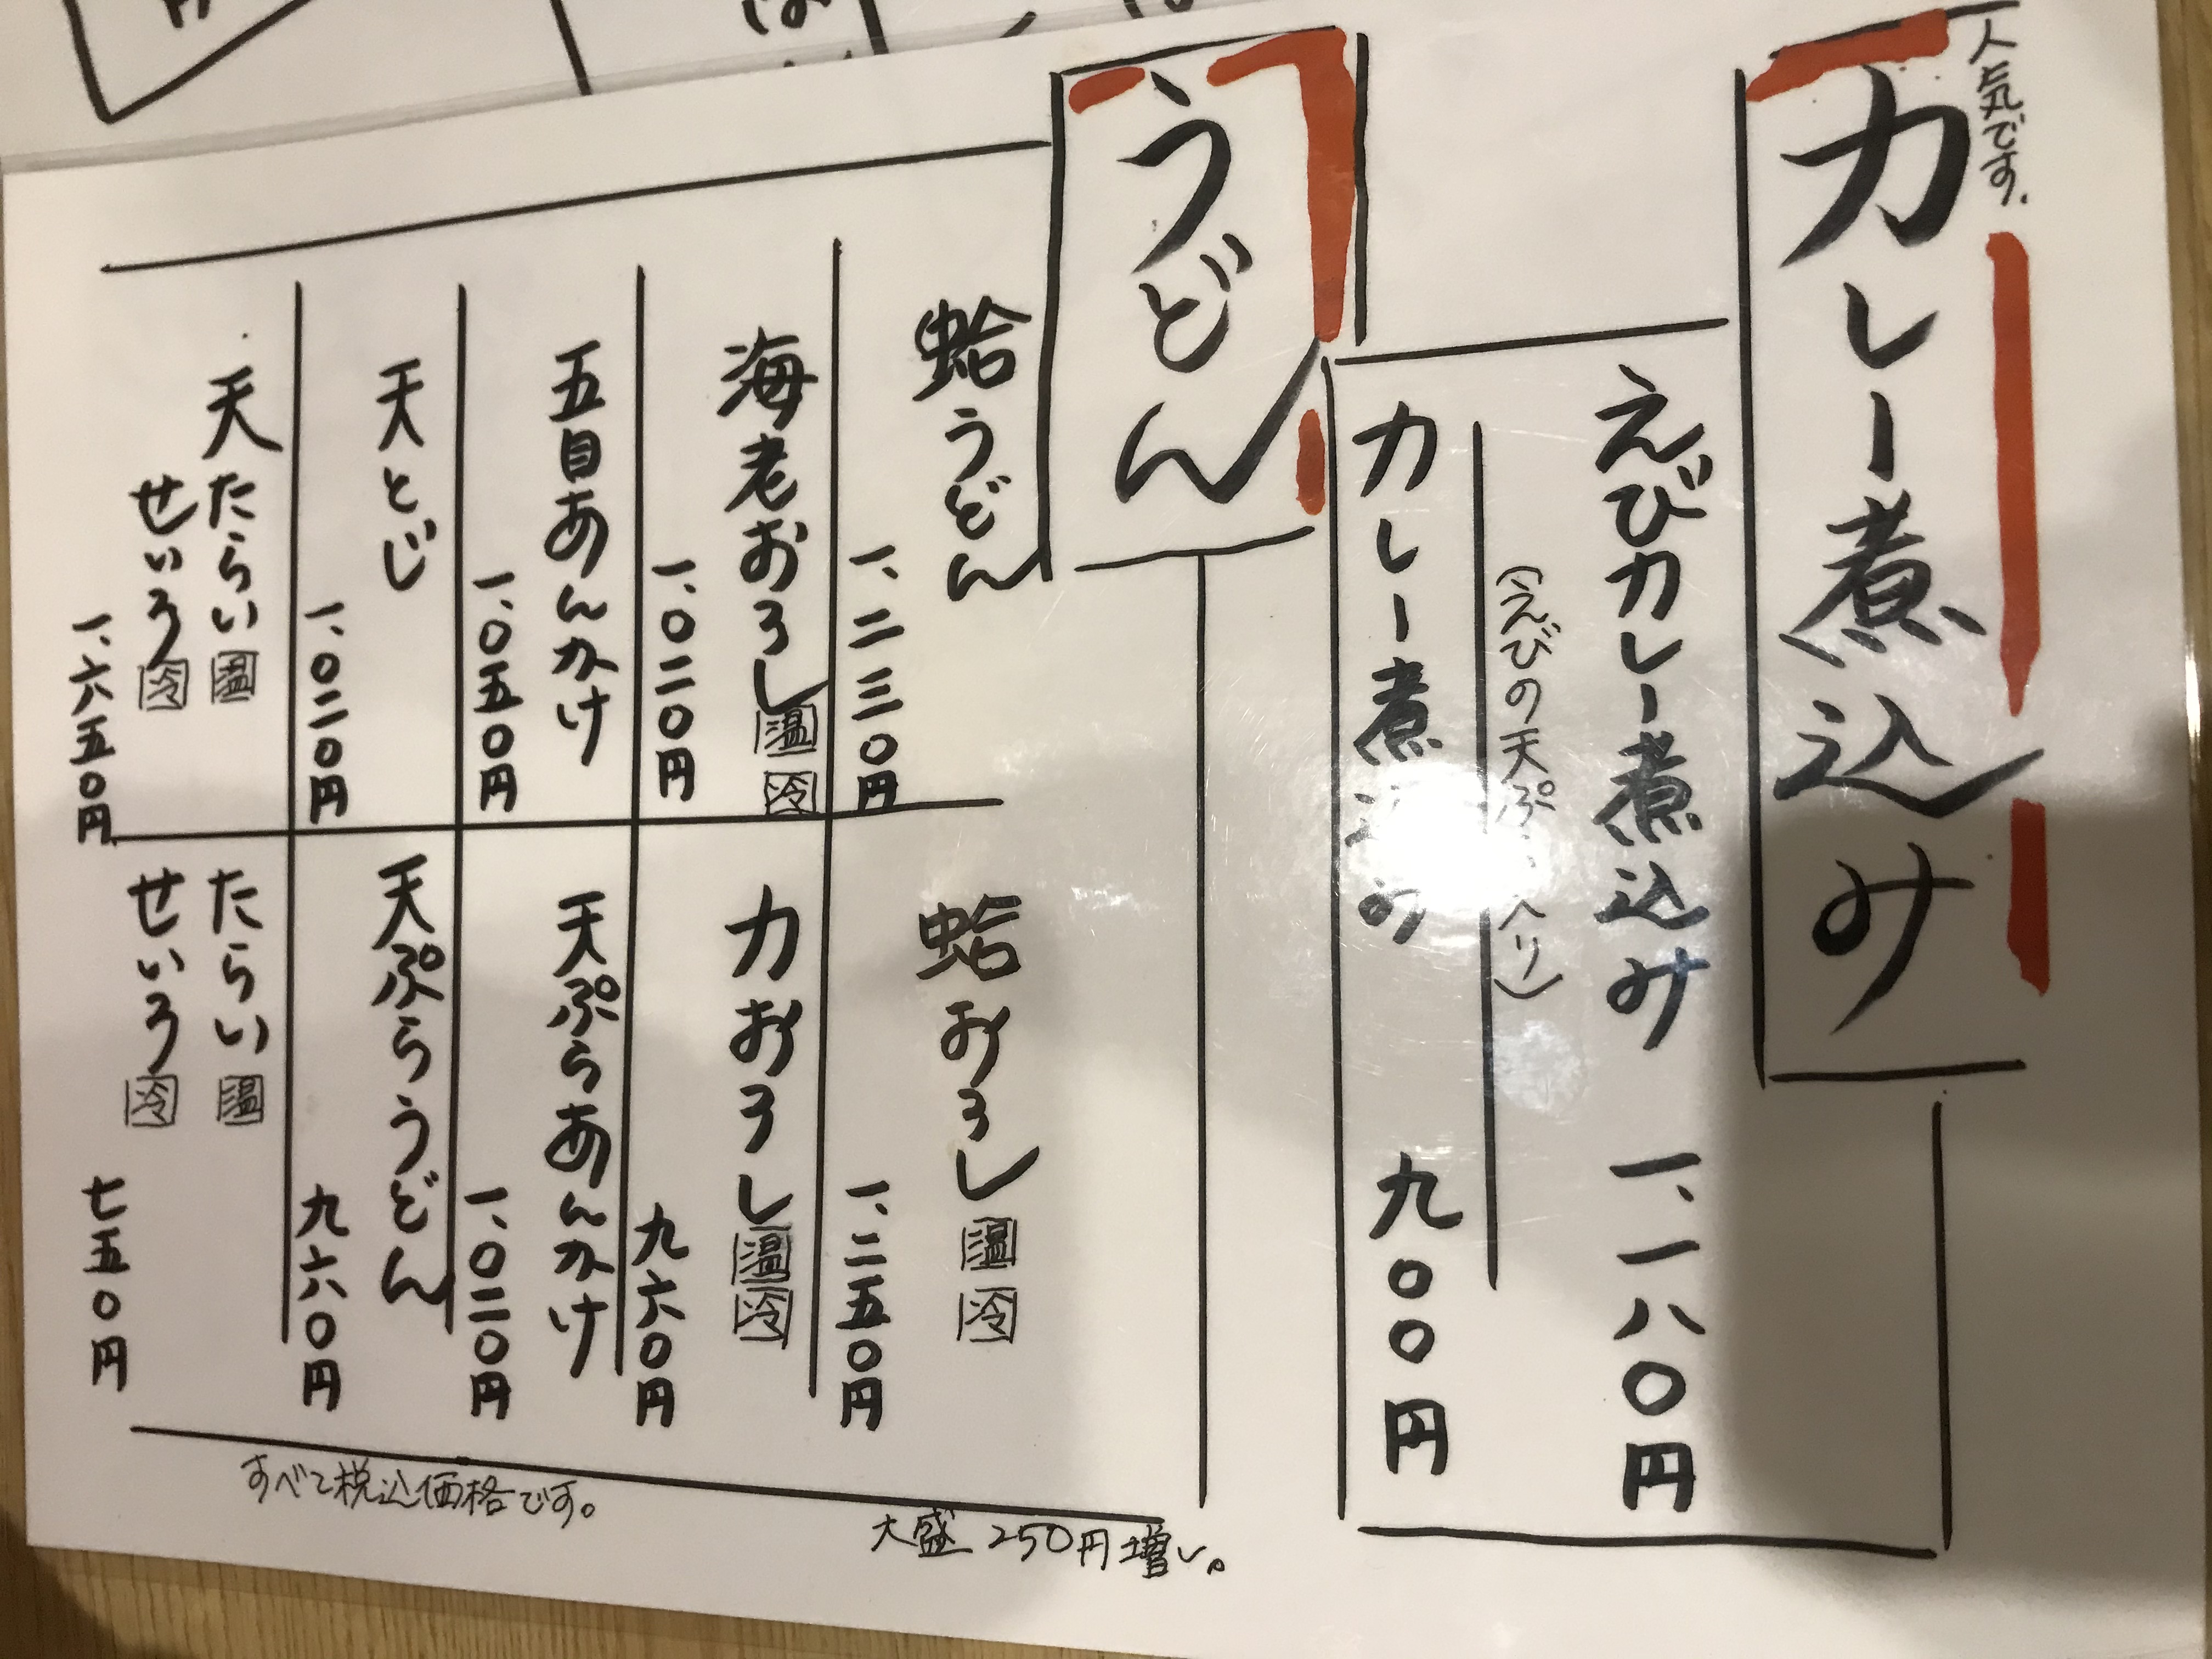 人気です.
カレー煮込み
えびカレー煮込み 一、一八〇円
(えびの天ぷら入り)
カレー煮込み 九〇〇円
うどん
蛤うどん
一、二三〇円
蛤おろし 温 冷
一、二五〇円
海老おろし 温 冷
一、〇二〇円
力おろし 温 冷
九六〇円
五目あんかけ
一、〇五〇円
天ぷらあんかけ
一、〇二〇円
天とじ
一、〇二〇円
天ぷらうどん
九六〇円
天 たらい 温
せいろ 冷
一、六五〇円
たらい 温
せいろ 冷
七五〇円
大盛 250円増し。
すべて税込価格です。